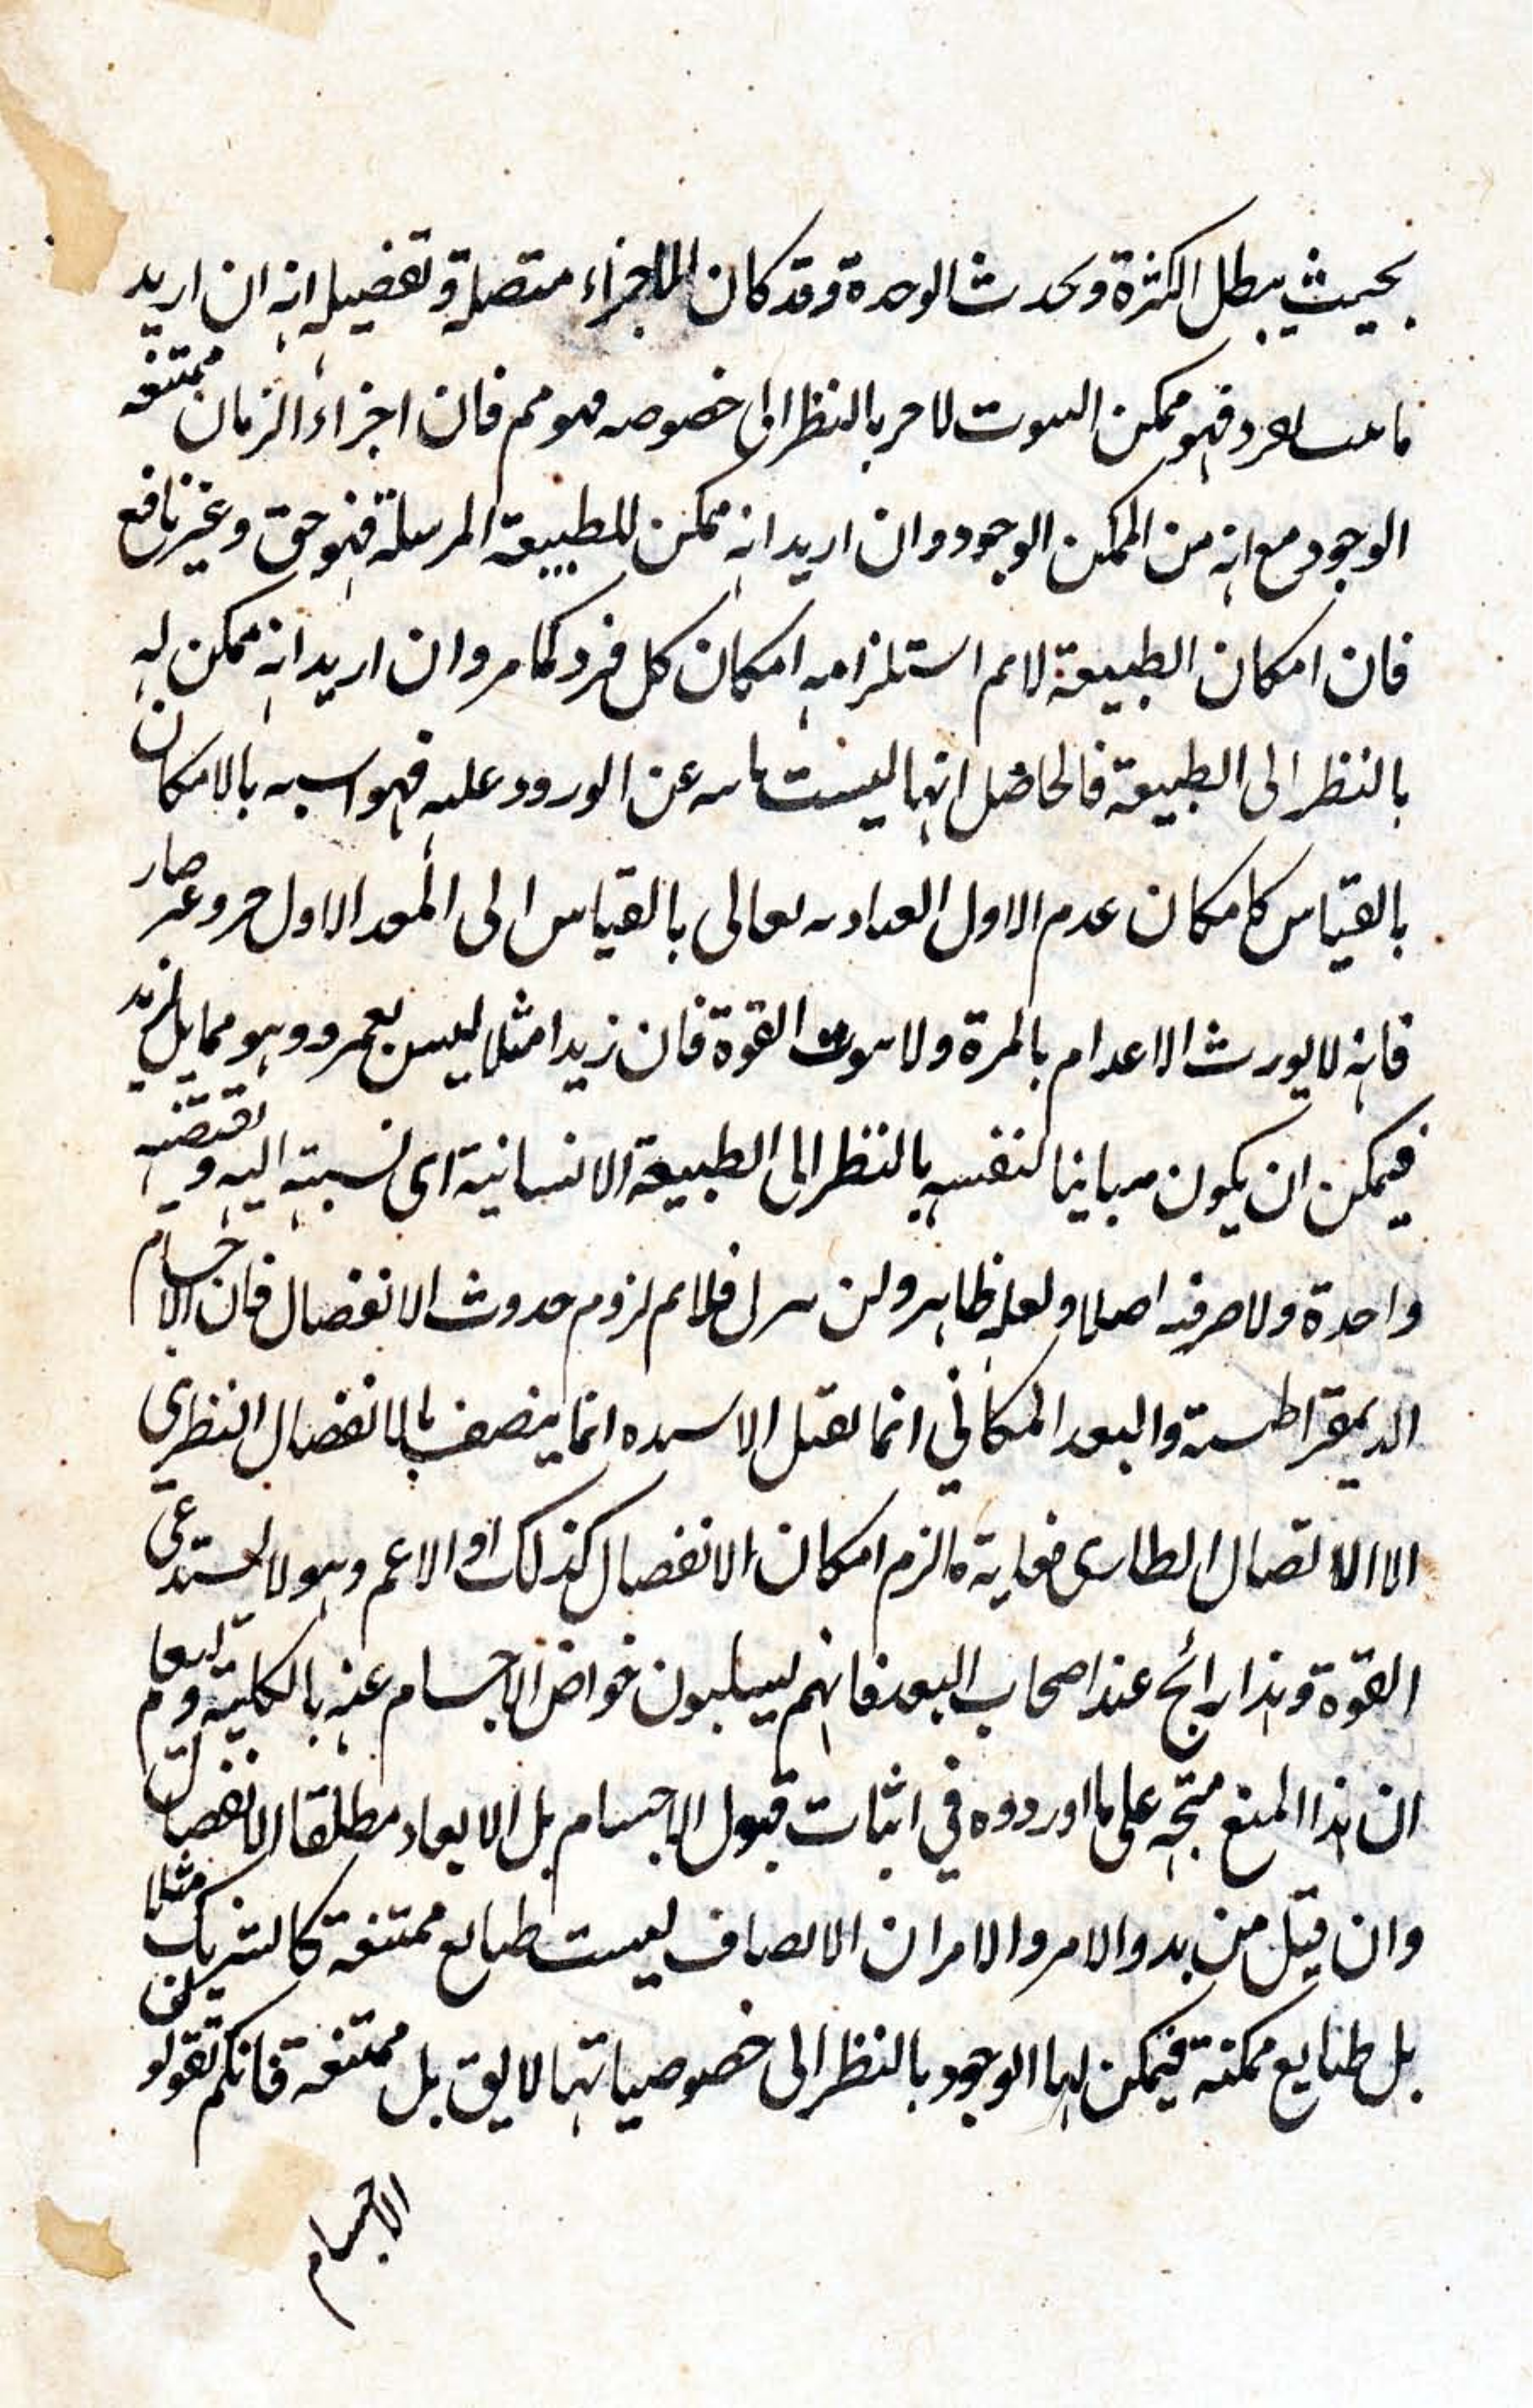 بحيث يبطل الكثرة ويحدث الوحدة وقد كان الاجزاء متصلة وتفصيله انه ان اريد
فهو ممكن بالنظر الى خصوصه فهو مم فان اجزاء الزمان ممتنعه
الوجود مع انه من الممكن الوجود وان اريد انه ممكن للطبيعة المرسلة فهو حق وغير نافع
فان امكان الطبيعة لا مم استلزامه امكان كل فرد كما مر وان اريد انه ممكن له
بالنظر الى الطبيعة فالحاصل انها ليست عن الورود عليه فهو بالامكان
بالقياس كامكان عدم الاول تعالى بالقياس الى الاول وغير صار
فانه لا يورث الاعدام بالمرة ولا القوة فان زيدا مثلا ليس بعمرو وهو مماثل لزيد
فيمكن ان يكون مباينا لنفسه بالنظر الى الطبيعة الانسانية اى نسبته اليه و تقتضيه
واحدة ولا صرفه اصلا ولعله ظاهر ولئن فلا مم لزوم حدوث الانفصال فان الاجسام
الديمقراطسية والبعد المكاني انما تقبل انما يتصف بالانفصال الفطرى
الا الاتصال الطارى فغاية ما لزم امكان الانفصال كذلك او الاعم وهو لا يستدعى
القوة وهذا رائج عند اصحاب البعد فانهم يسلبون خواص الاجسام عنه بالكلية و
ان هذا المنع متجه على ما اوردوه في اثبات قبول الاجسام بل الابعاد مطلقا الانفصال
وان قيل من بدو الامر والامر ان الانصاف ليست طبايع ممتنعة كالشريك مثلا
بل طبايع ممكنة فيمكن لها الوجود بالنظر الى خصوصياتها لا يق بل ممتنعة فانكم تقولون
الاجسام